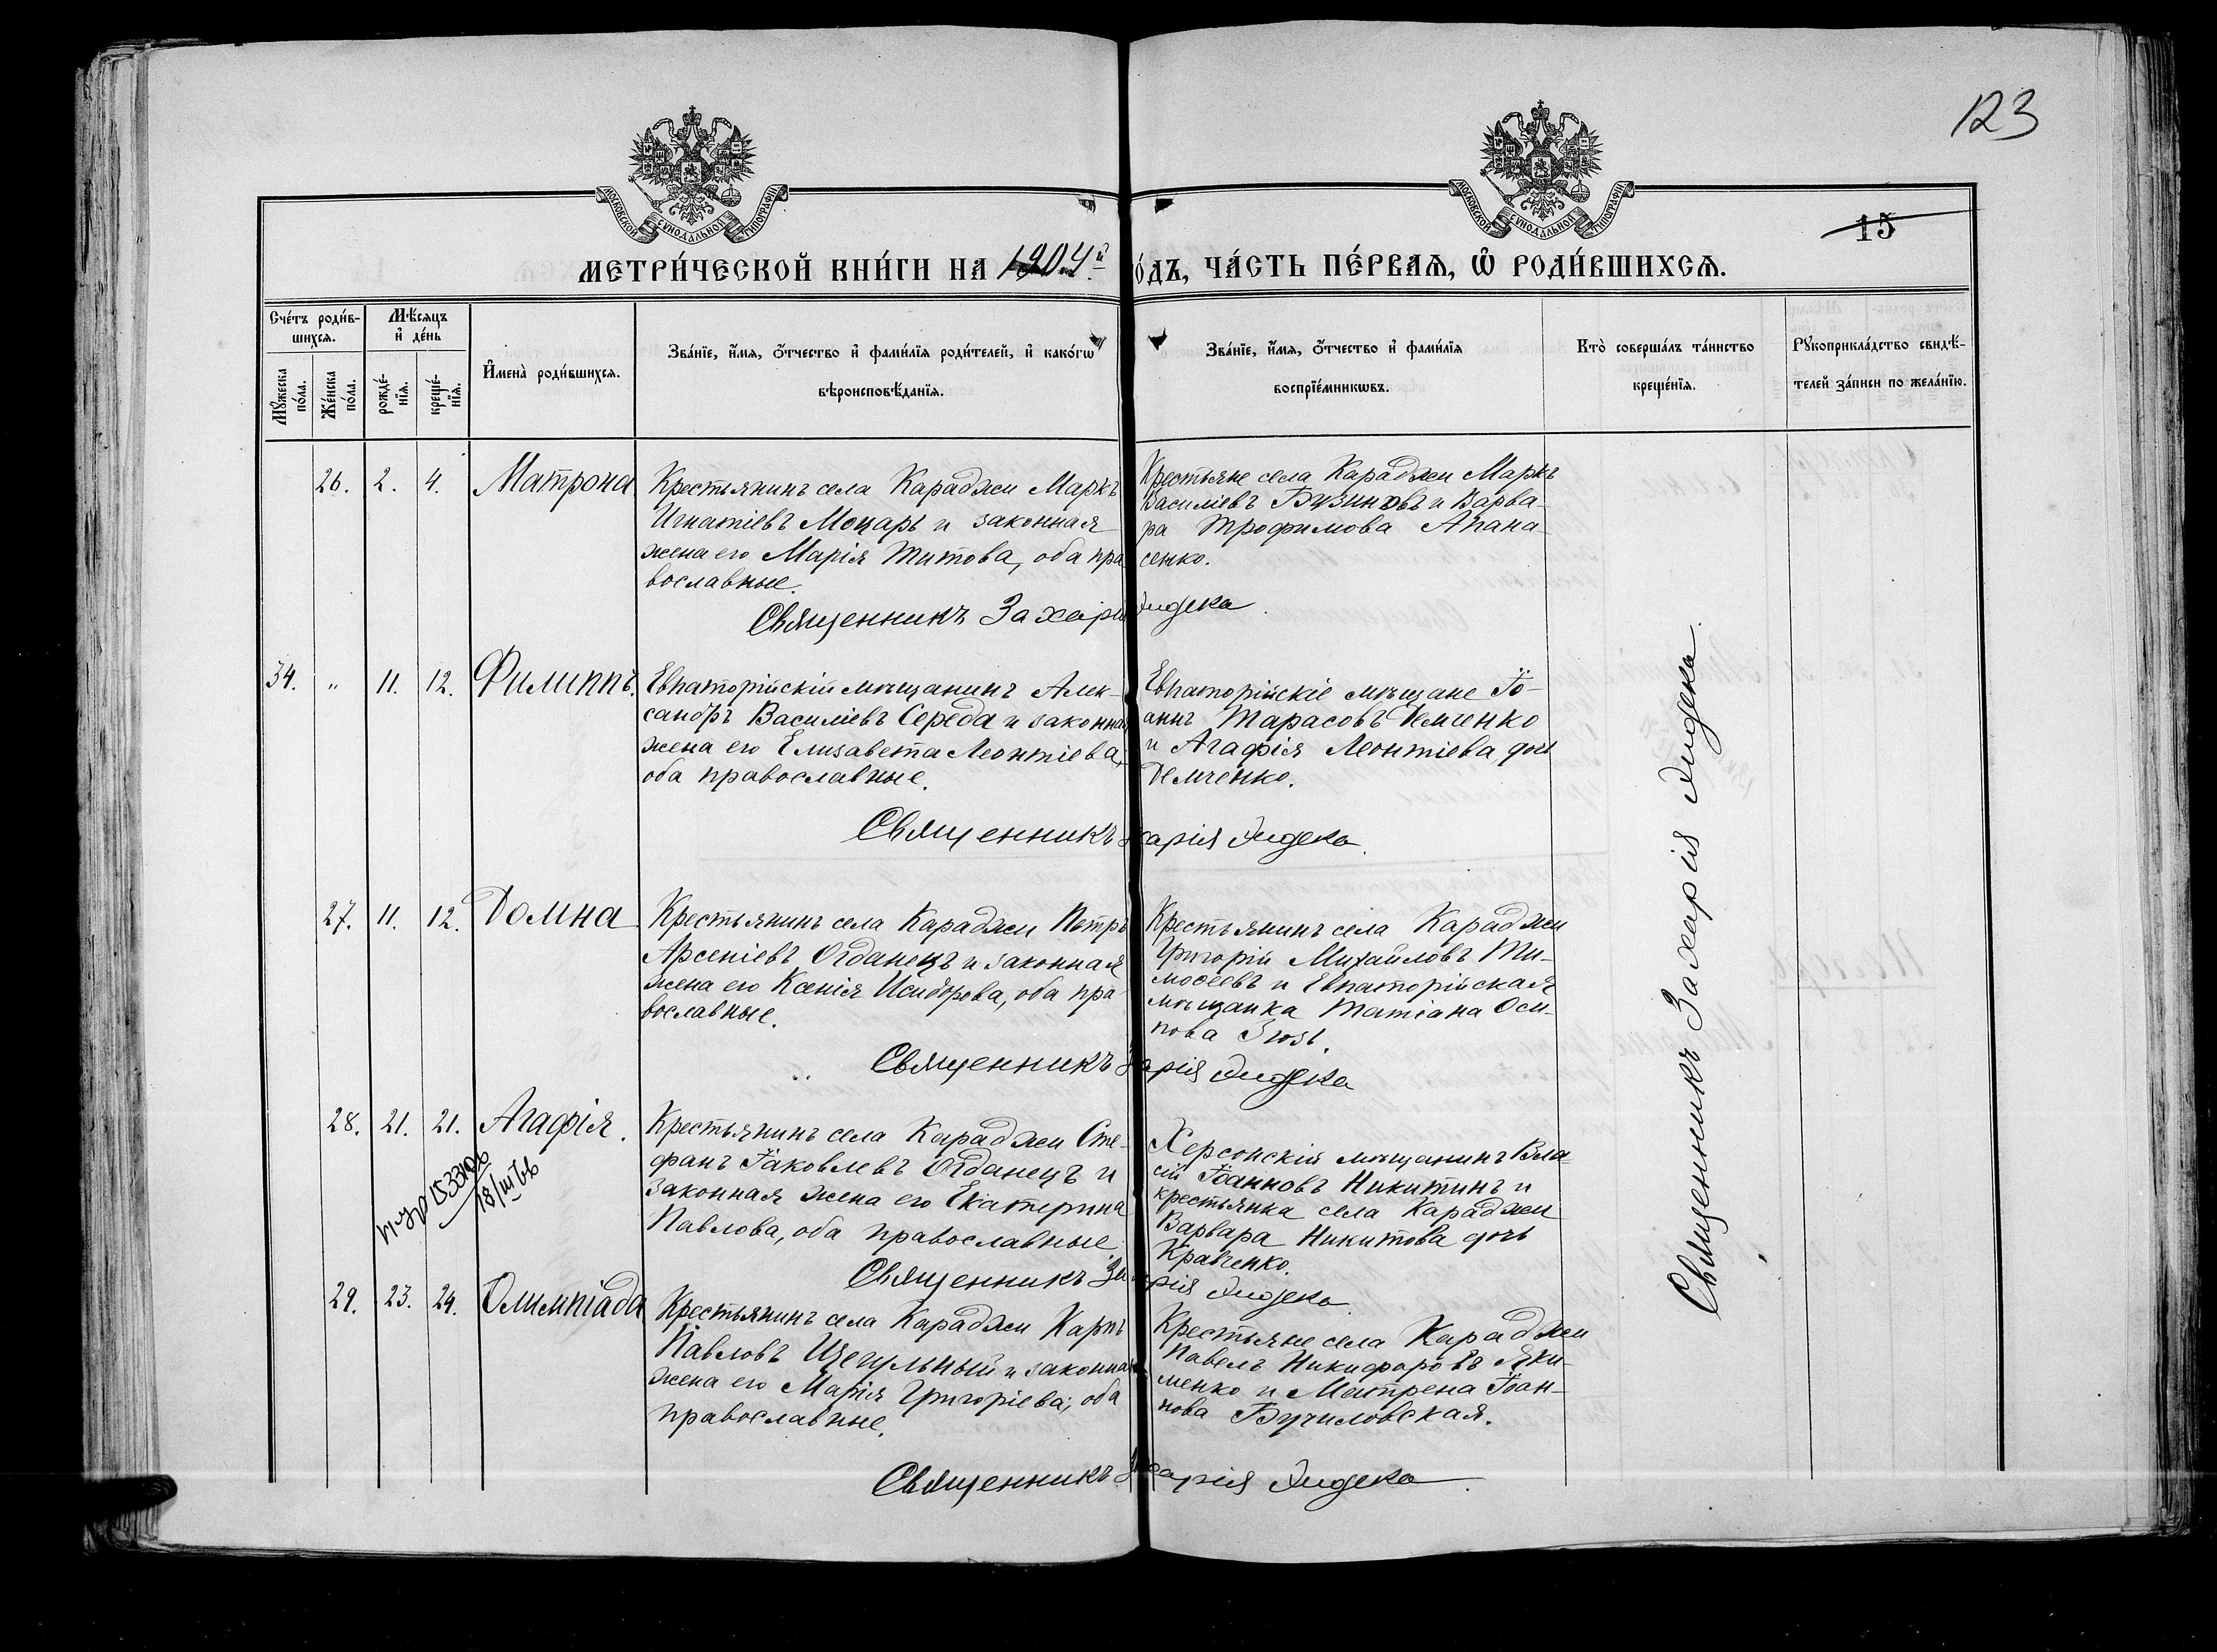 123
МОСКОВСКОЙ СУНОДАЛЬНОЙ ТИПОГРАФІИ
МОСКОВСКОЙ СУНОДАЛЬНОЙ ТИПОГРАФІИ
15
МЕТРИ́ЧЕСКОЙ КНИ́ГИ НА 1904й
о́дъ, ЧА́СТЬ ПЕ́РВАѦ, Ѡ҆ РОДИ́ВШИХСѦ.
Сче́тъ роди́в-
шихсѧ.
Мꙋ́жеска
по́ла.
Же́нска
по́ла.
Мѣ́сѧцъ
и҆ де́нь
рожде́-
нїѧ.
креще́-
нїѧ.
И҆мена̀ роди́вшихсѧ.
Зва́нїе, и҆́мѧ, ѻ҆́тчество и҆ фами́лїѧ роди́телей, и҆ како́гѡ
вѣроисповѣ́данїѧ.
Зва́нїе, и҆́мѧ, ѻ҆́тчество и҆ фами́лїѧ
воспрїе́мникѡвъ.
Кто̀ соверша́лъ та́инство
креще́нїѧ.
Рꙋкоприкла́дство свидѣ́-
телей за́писи по жела́нїю.
26. 2. 4. Матрона
Крестьянинъ села Караджи Маркъ
Игнатіевъ Моцарь и законная
жена его Марія Титова, оба пра
вославные.
Крестьяне села Караджи Маркъ
Василіевъ Бузиновъ и Варва-
ра Трофимова Апана-
сенко.
Священникъ Захарія
34. „ 11. 12. Филиппъ.
Евпаторійскій мѣщанинъ Алек-
сандръ Василіевъ Середа и законная
жена его Елизавета Леонтіева,
оба православные.
Евпаторійскіе мѣщане Іо-
аннъ Тарасовъ Демченко
и Агафія Леонтіева дочь
Демченко.
Священникъ Захарія
27. 11. 12. Домна
Крестьянинъ села Караджи Петръ
Арсеніевъ Огданецъ и законная
жена его Ксенія Исидорова, оба пра-
вославные.
Крестьянинъ села Караджи
Григорій Михайловъ Ти-
мофеевъ и Евпаторійская
мѣщанка Татіана Оси-
пова Зюзь.
Священникъ Захарія
28. 21. 21. Агафія.
Крестьянинъ села Караджи Сте-
фанъ Іаковлевъ Огданецъ и
законная жена его Екатерина
Павлова, оба православные
Херсонскій мѣщанинъ Вла-
сій Іоанновъ Никитинъ и
крестьянка села Караджи
Варвара Никитова дочь
Кравченко.
18/III
Священникъ Захарія
29. 23. 24. Олимпіада
Крестьянинъ села Караджи Карпъ
Павловъ Щегульный и законная
жена его Марія Григоріева; оба
православные.
Крестьяне села Караджи
Павелъ Никифоровъ Яки-
менко и Матрена Іоан-
нова Бучиловская.
Священникъ Захарія
Священникъ Захарія